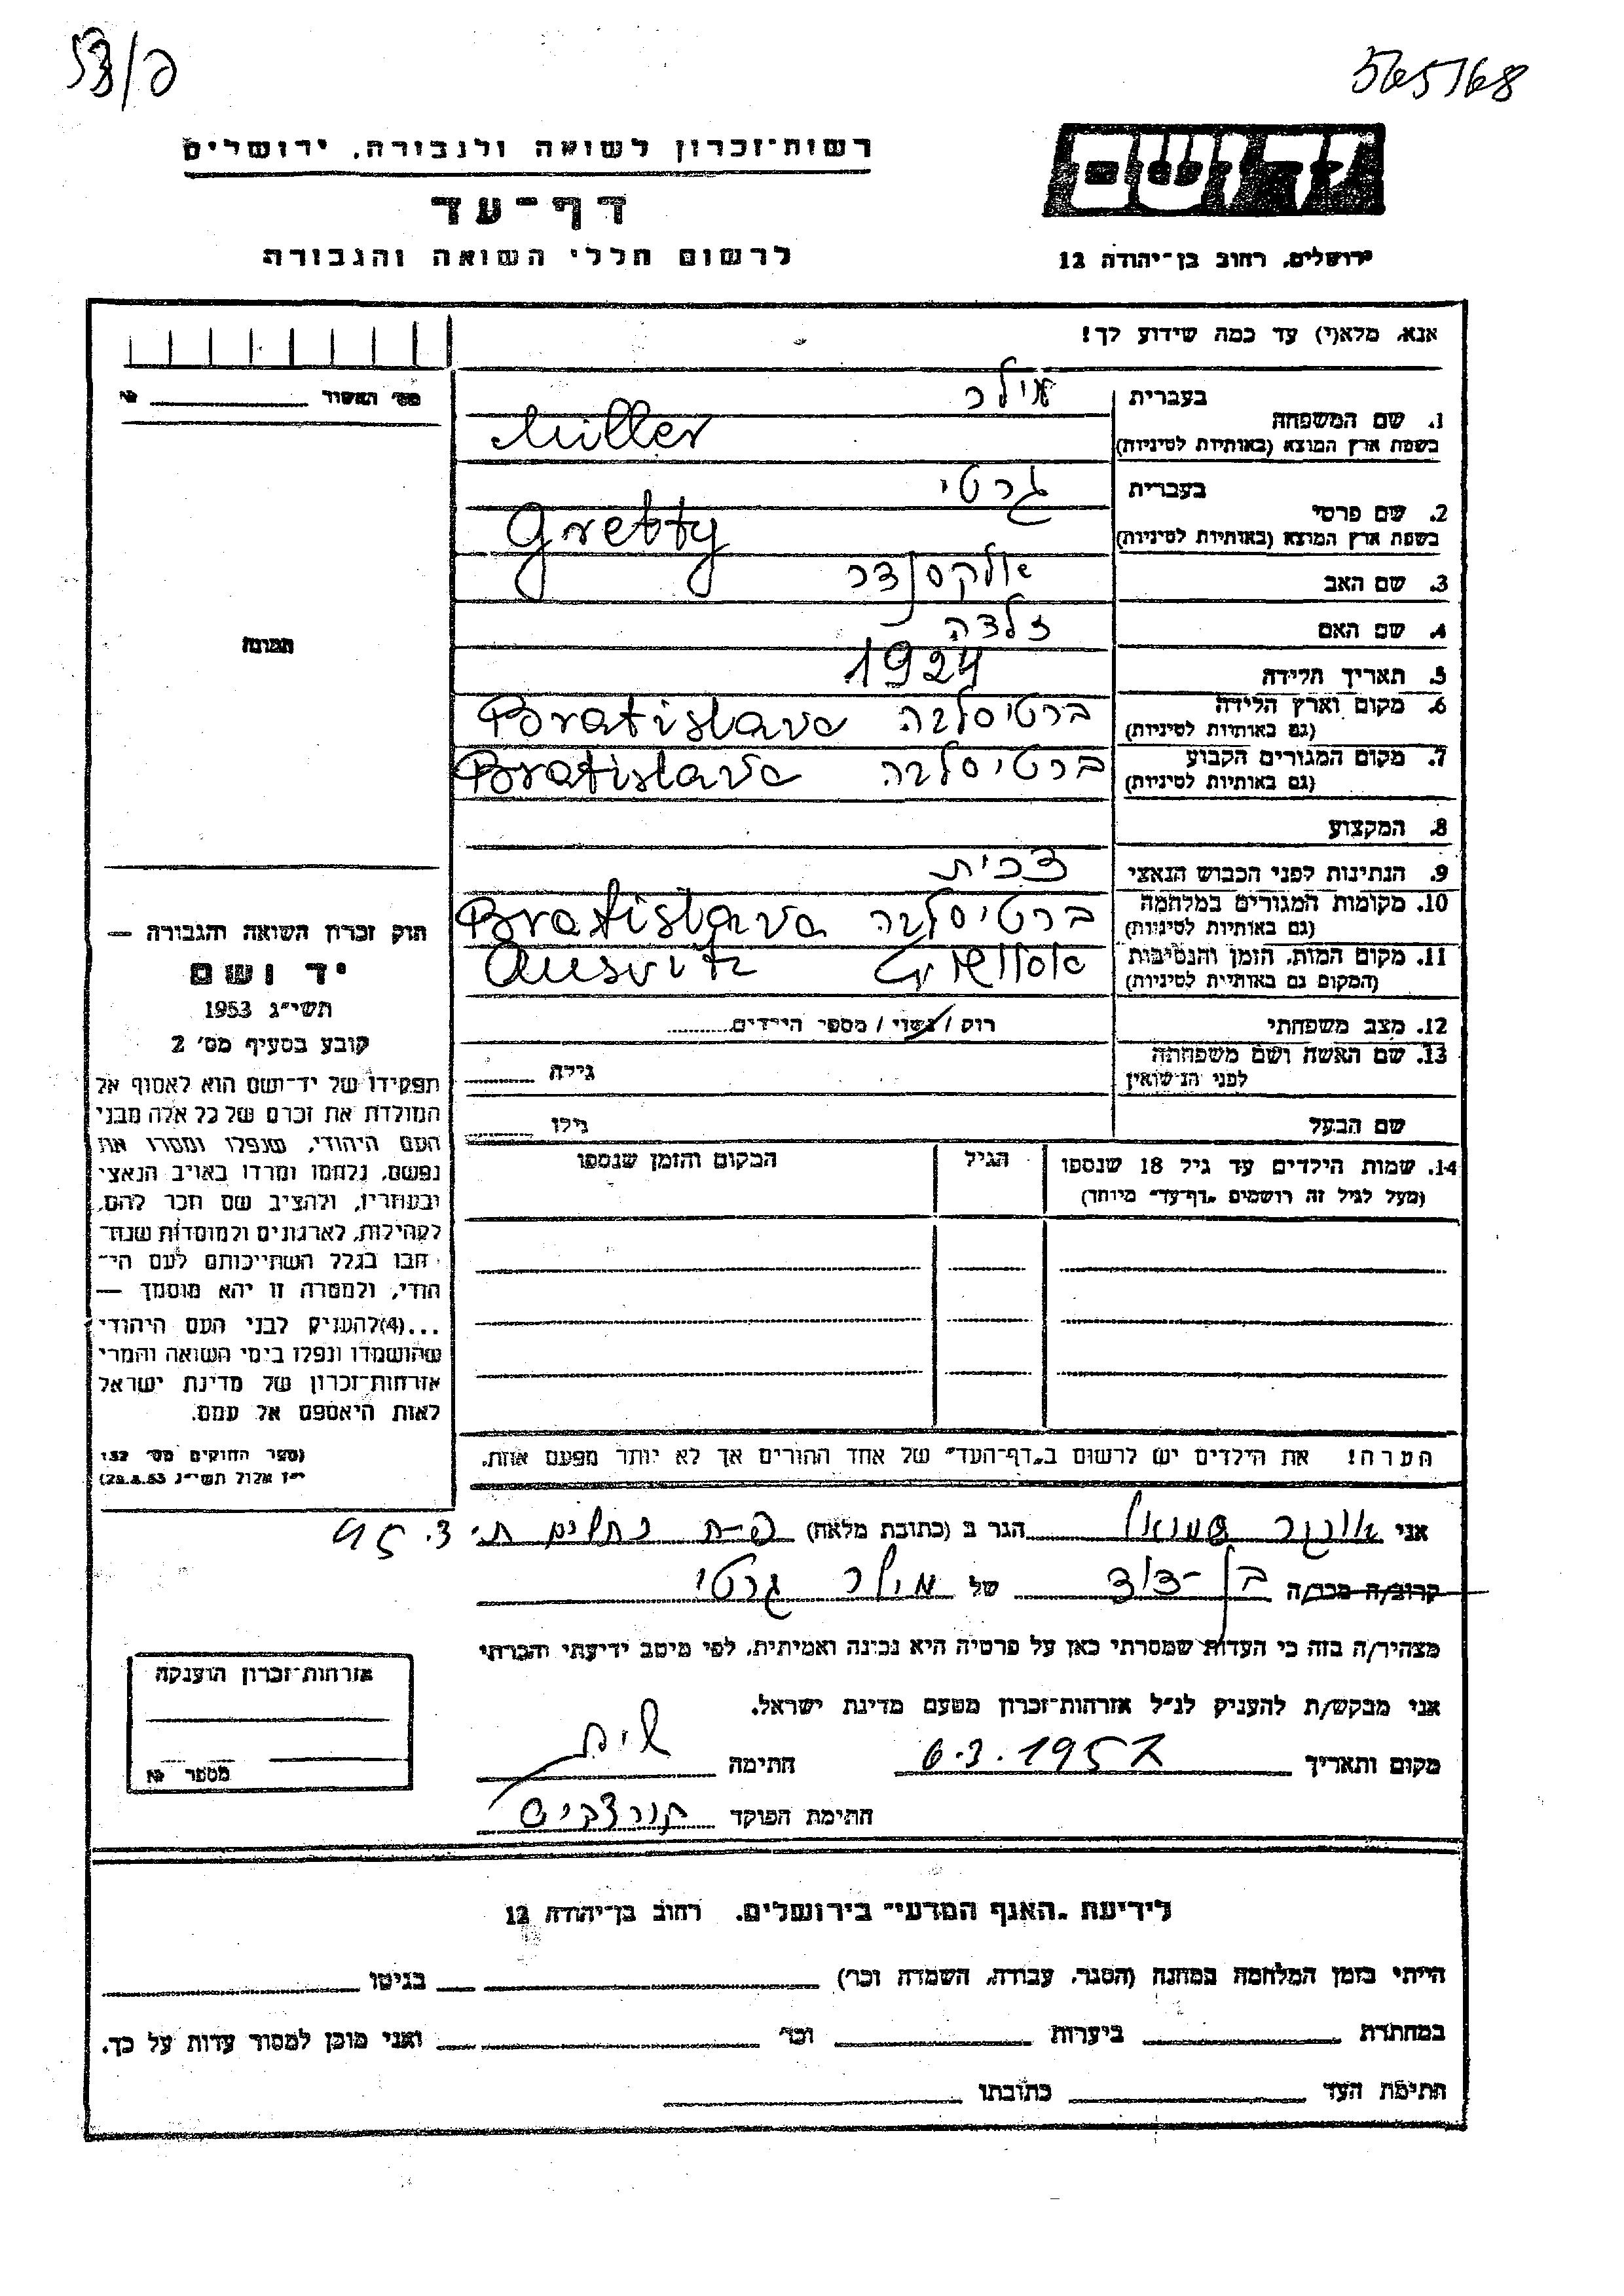 565168
ה/53
יד ושם
ירושלים, רחוב בן־יהודה 12
רשות־זכרון לשואה ולגבורה, ירושלים
דף־עד
לרשום חללי השואה והגבורה
אנא, מלא(י) עד כמה שידוע לך!
מס׳ האשור №
1. שם המשפחה
בעברית מילר
בשפת ארץ המוצא (באותיות לטיניות) Müller
2. שם פרטי
בעברית גרטי
בשפת ארץ המוצא (באותיות לטיניות) Gretty
3. שם האב אלקסנדר
4. שם האם זלדה
5. תאריך הלידה 1924
6. מקום וארץ הלידה ברטיסלבה Bratislava
(גם באותיות לטיניות)
7. מקום המגורים הקבוע ברטיסלבה Bratislava
(גם באותיות לטיניות)
8. המקצוע
9. הנתינות לפני הכבוש הנאצי צכית
10. מקומות המגורים במלחמה ברטיסלבה Bratislava
(גם באותיות לטיניות)
11. מקום המות, הזמן והנסיבות Ausvitz
(המקום גם באותיות לטיניות)
12. מצב משפחתי רוק / נשוי / מספר הילדים
13. שם האשה ושם משפחתה גילה
לפני הנישואין
שם הבעל גילו
14. שמות הילדים עד גיל 18 שנספו הגיל המקום והזמן שנספו
(מעל לגיל זה רושמים „דף־עד״ מיוחד)
הערה! את הילדים יש לרשום ב„דף־העד״ של אחד ההורים אך לא יותר מפעם אחת.
תמונה
חוק זכרון השואה והגבורה —
יד ושם
תשי״ג 1953
קובע בסעיף מס׳ 2
תפקידו של יד־ושם הוא לאסוף אל
המולדת את זכרם של כל אלה מבני
העם היהודי, שנפלו ומסרו את
נפשם, נלחמו ומרדו באויב הנאצי
ובעוזריו, ולהציב שם וזכר להם,
לקהילות, לארגונים ולמוסדות שנח־
רבו בגלל השתייכותם לעם הי־
הודי, ולמטרה זו יהא מוסמך —
...(4)להעניק לבני העם היהודי
שהושמדו ונפלו בימי השואה והמרי
אזרחות־זכרון של מדינת ישראל
לאות היאספם אל עמם.
(ספר החוקים מס׳ 132
י״ז אלול תשי״ג 28.8.53)
אני אונגר שמואל הגר ב (כתובת מלאה) פ-ת 95.3
קרוב/ה מכר/ה בן-דוד של מילר גרטי
מצהיר/ה בזה כי העדות שמסרתי כאן על פרטיה היא נכונה ואמיתית, לפי מיטב ידיעתי והכרתי
אני מבקש/ת להעניק לנ״ל אזרחות־זכרון מטעם מדינת ישראל.
מקום ותאריך 6.3.1957 חתימה
חתימת הפוקד
אזרחות־זכרון הוענקה
מספר №
לידיעת „האגף המדעי״ בירושלים, רחוב בן־יהודה 12
הייתי בזמן המלחמה במחנה (הסגר, עבודה, השמדה וכו׳) בגיטו
במחתרת ביערות וכו׳ ואני מוכן למסור עדות על כך.
חתימת העד כתובתו